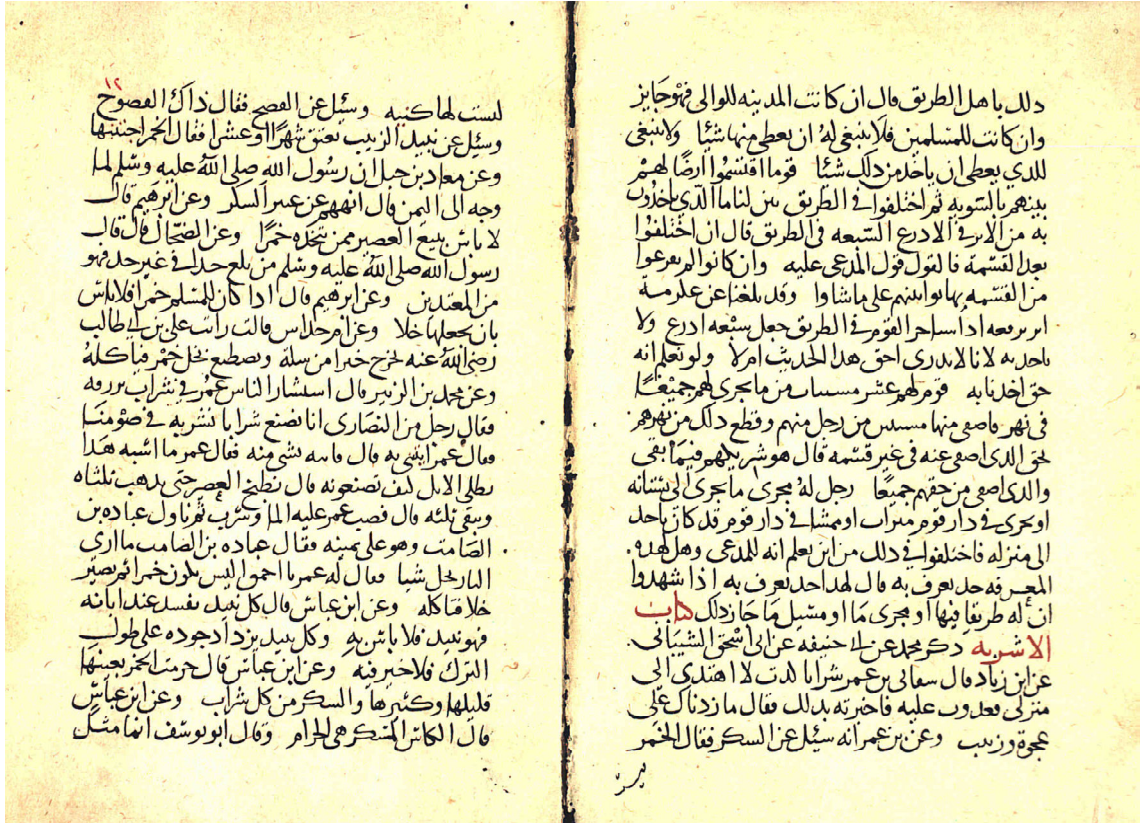 ذلك باهل الطريق قال ان كانت المدينه للوالى فهو جايز
وان كانت للمسلمين فلا ينبغى له ان يعطى منها شيئا ولا ينبغى
للذي يعطى ان ياخذ من ذلك شئا قوما اقتسموا ارضا لهم
بينهم بالسويه ثم اختلفوا فى الطريق بين لنا ما الذي ياخذون
به من الاثر فى الاذرع السبعه فى الطريق قال ان اختلفوا
بعد القسمة فالقول قول المدعى عليه وان كانوا لم يفرعوا
من القسمه بهايوا بينهم على ماشاوا وقد بلغنا عن عكرمه
اثر يرفعه اذا ساحر القوم فى الطريق جعل سبعه اذرع ولا
ناخذ به لانا لا ندرى احق هذا الحديث ام لا ولو نعلم انه
حق اخذنا به قوم لهم عشر من ما يجرى لهم جميعا
فى نهر فاصفى منها من رجل منهم وقطع ذلك من نهرهم
بحق الذى اصفى عنه فى غير قسمه قال هو شريكهم فيما بقى
والذى اصفى من حقهم جميعا رجل له مجرى ما يجرى الى بستانه
او مجرى فى دار قوم ميزاب او ممشا فى دار قوم قد كان ياخذ
الى منزله فاختلفوا فى ذلك من اين يعلم انه للمدعى وهل لهذه
المعرفه حد يعرف به قال لهذا حد يعرف به اذا شهدوا
ان له طريقا فيها او مجرى ما او مسيل ما جاز ذلك كتاب
الاشربه ذكر محمد عن ابى حنيفه عن ابى اسحق الشيبانى
عن ابن زياد قال سقانى بن عمر شرابا كدت لا اهتدى الى
منزلى فغدوت عليه فاخبرته بذلك فقال ما زدناك على
عجوة وزبيب وعن بن عمر انه سئل عن السكر فقال الخمر
ليست
١٢
ليست لها كنيه وسئل عن الفصح فقال ذاك الفضوح
وسئل عن نبيذ الزبيب يعتق شهرا او عشرا فقال الخمر اجتنبها
وعن معاذ بن جبل ان رسول الله صلى الله عليه وسلم لما
وجه الى اليمن قال انههم عن السكر وعن ابرهيم قال
لا باس ببيع العصير ممن يتخذه خمرا وعن الضحاك قال قال
رسول الله صلى الله عليه وسلم من بلغ حدا فى غير حد فهو
من المعتدين وعن ابرهيم قال اذا كان للمسلم خمرا فلا باس
بان يجعلها خلا وعن ام خداس قالت رايت على بن ابى طالب
رضى الله عنه يخرج خبزا من سلة ويصطبغ بخل خمر فياكله
وعن محمد بن الزبير قال استشار الناس عمر فى شراب يرزقه
فقال رجل من النصارى انا نصنع شرابا نشربه فى صومنا
فقال عمر ايتنى به قال فاتاه بشى منه فقال عمر ما اشبه هذا
بطلى الابل كيف تصنعونه قال نطبخ العصير حتى يذهب ثلثاه
ويبقى ثلثه قال فصب عمر عليه الما وشرب ثم ناول عباده بن
الصامت وهو على يمينه فقال عباده بن الصامت ما ارى
النار تحل شيا فقال له عمر يا احمق اليس يكون خمرا ثم يصير
خلا فتاكله وعن ابن عباس قال كل نبيذ يفسد عند ابانه
فهو نبيذ فلا باس به وكل نبيذ يزداد جوده على طول
الترك فلا خير فيه وعن ابن عباس قال حرمت الخمر بعينها
قليلها وكثيرها والسكر من كل شراب وعن ابن عباس
قال الكاس المسكر هى الحرام وقال ابو يوسف انما مثل